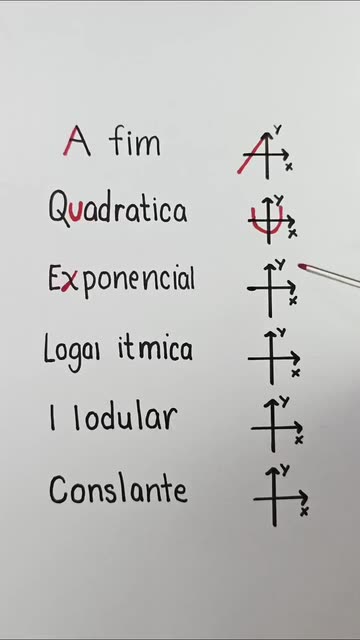 A fim Y X
Quadratica Y X
Exponencial Y X
Logaı itmica Y X
I lodular Y X
Conslante Y X